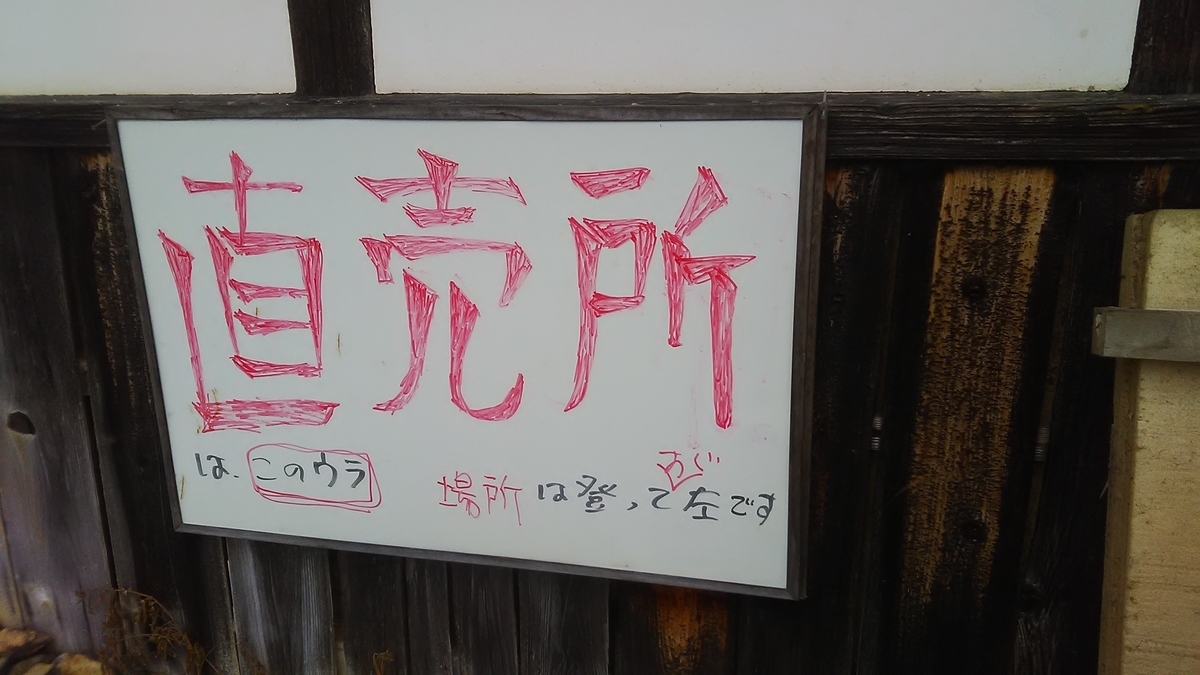 直売所
は、このウラ
場所は登ってすぐ左です